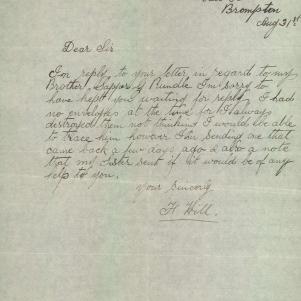 Brompton
Aug 31st
Dear Sir
In reply to your letter in regard to my
Brother Sapper G Rundle I'm sorry to
have kept you waiting for reply I had
no envelopes at the time for I always
destroyed them not thinking I would be able
to trace him however I'm sending one that
came back a few days ago & also a note
that my Sister sent if it would be of any
help to you.
Your Sincerly
H Will.